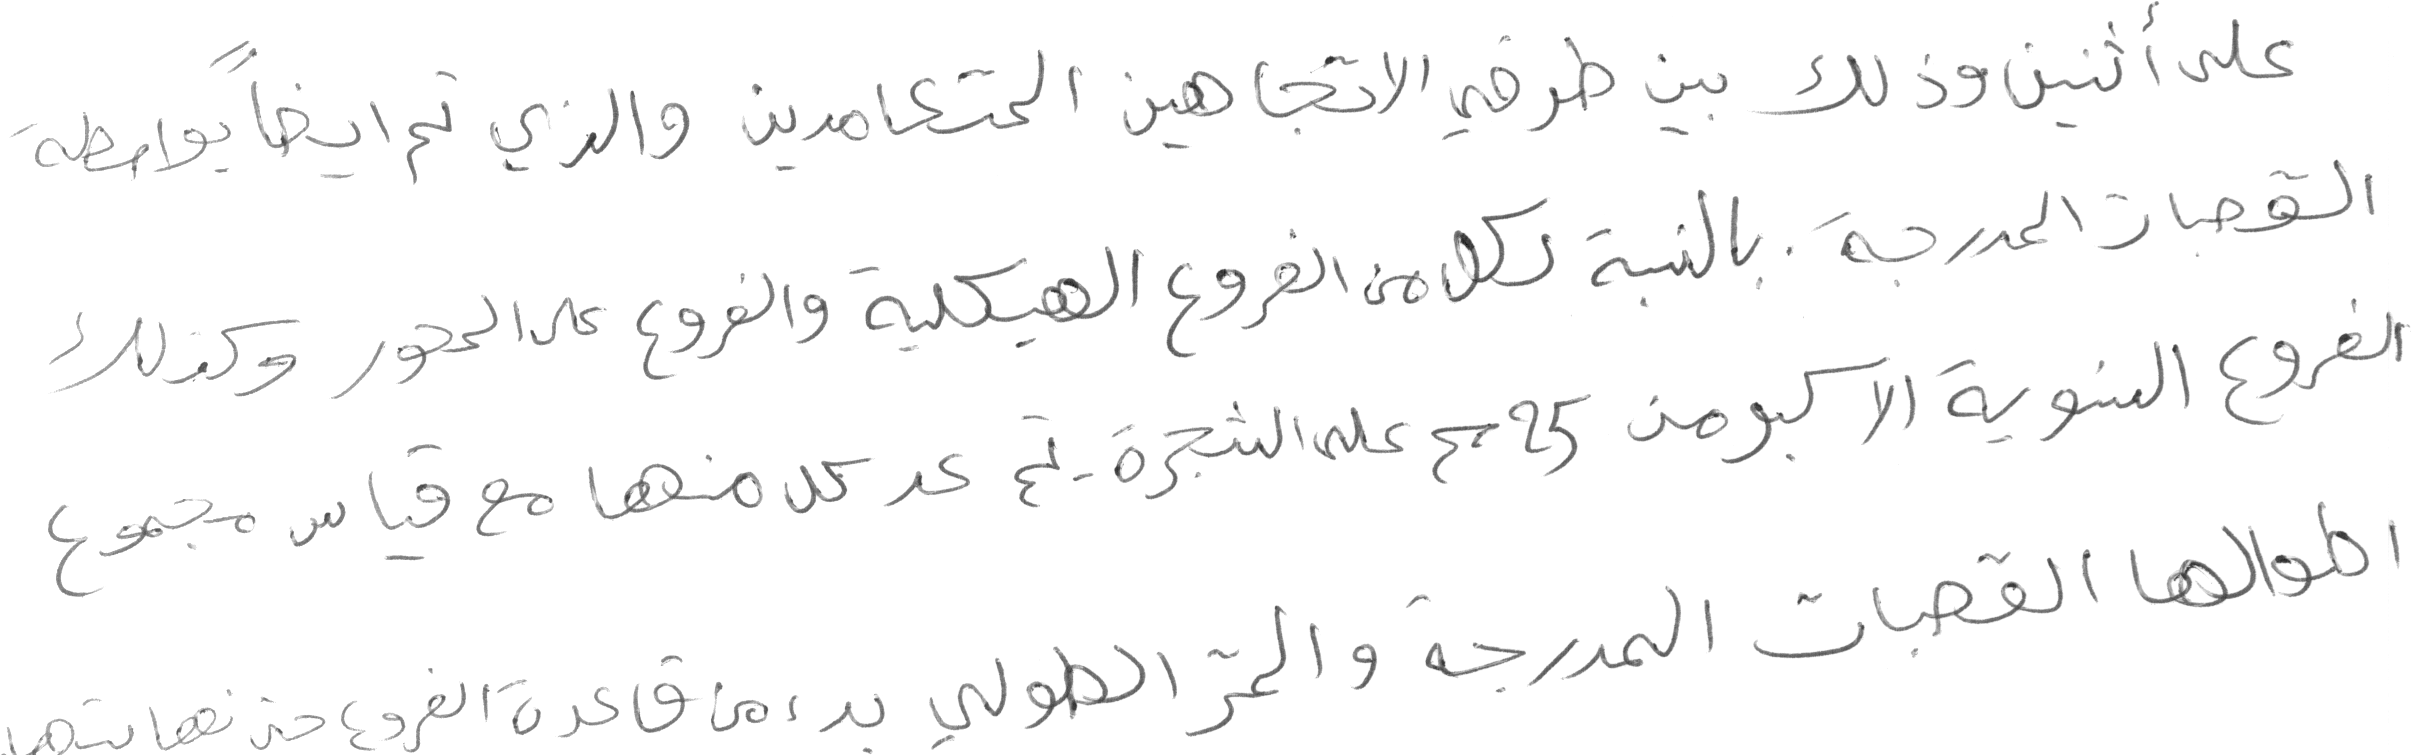 على أثنين وذلك بين طرفي الاتجاهين المتعامدين والذي تم ايضاً بواسطة
القصبات المدرجة. بالنسبة لكل من الفروع الهيكلية والفروع على المحور وكذلك
الفروع السنوية الاكبر من 25 سم على الشجرة. تم عد كل منها مع قياس مجموع
اطوالها القصبات المدرجة والمتر الطولي بدء من قاعدة الفروع حتى نهايتها